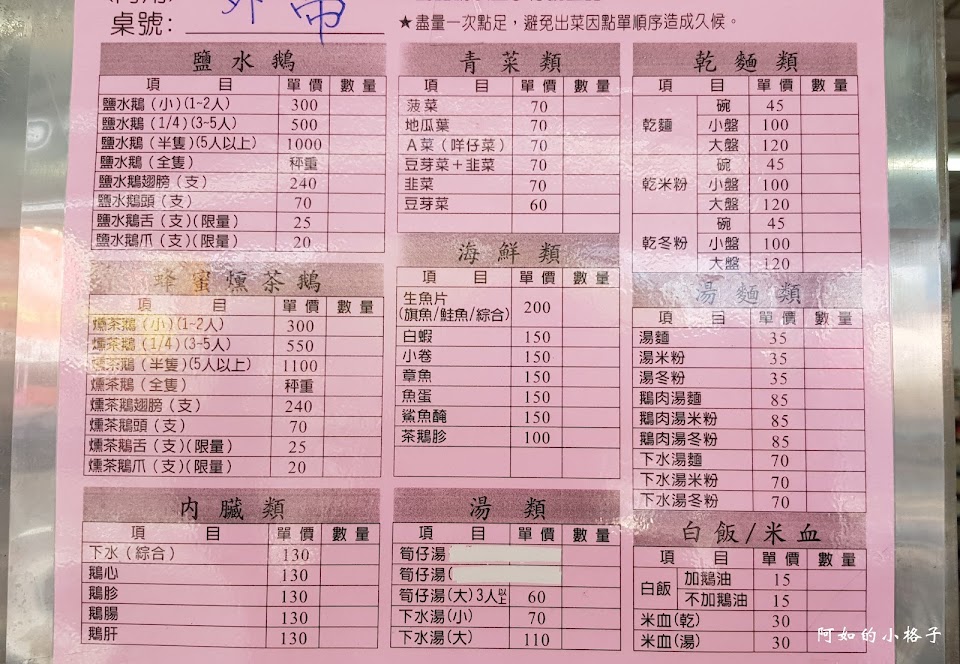 桌號:
外帶
★盡量一次點足，避免出菜因點單順序造成久候。
鹽水鵝
項目 單價 數量
鹽水鵝（小）(1~2人) 300
鹽水鵝（1/4）(3~5人) 500
鹽水鵝（半隻）(5人以上) 1000
鹽水鵝（全隻） 秤重
鹽水鵝翅膀（支） 240
鹽水鵝頭（支） 70
鹽水鵝舌（支）(限量) 25
鹽水鵝爪（支）(限量) 20
蜂蜜燻茶鵝
項目 單價 數量
燻茶鵝（小）(1~2人) 300
燻茶鵝（1/4）(3~5人) 550
燻茶鵝（半隻）(5人以上) 1100
燻茶鵝（全隻） 秤重
燻茶鵝翅膀（支） 240
燻茶鵝頭（支） 70
燻茶鵝舌（支）(限量) 25
燻茶鵝爪（支）(限量) 20
內臟類
項目 單價 數量
下水（綜合） 130
鵝心 130
鵝胗 130
鵝腸 130
鵝肝 130
青菜類
項目 單價 數量
菠菜 70
地瓜葉 70
A菜（咩仔菜） 70
豆芽菜＋韭菜 70
韭菜 70
豆芽菜 60
海鮮類
項目 單價 數量
生魚片
(旗魚/鮭魚/綜合) 200
白蝦 150
小卷 150
章魚 150
魚蛋 150
鯊魚醃 150
茶鵝胗 100
湯類
項目 單價 數量
筍仔湯
筍仔湯(
筍仔湯(大)3人以上 60
下水湯(小) 70
下水湯(大) 110
乾麵類
項目 單價 數量
乾麵 碗 45
小盤 100
大盤 120
乾米粉 碗 45
小盤 100
大盤 120
乾冬粉 碗 45
小盤 100
大盤 120
湯麵類
項目 單價 數量
湯麵 35
湯米粉 35
湯冬粉 35
鵝肉湯麵 85
鵝肉湯米粉 85
鵝肉湯冬粉 85
下水湯麵 70
下水湯米粉 70
下水湯冬粉 70
白飯/米血
項目 單價 數量
白飯 加鵝油 15
不加鵝油 15
米血(乾) 30
米血(湯) 30
阿如的小格子